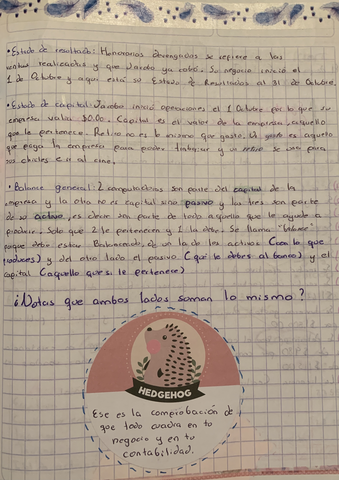 • Estado de resultado: Honorarios devengados se refiere a las
ventas realizadas y que Jacobo ya cobró. Su negocio inició el
1 de Octubre y aquí está su Estado de Resultados al 31 de Octubre.
• Estado de capital: Jacobo inició operaciones el 1 Octubre por lo que su
empresa valía $0.00. Capital es el valor de la empresa, aquello
que le pertenece. Retiro no es lo mismo que gasto. Un gasto es aquello
que paga la empresa para poder trabajar y un retiro se usa para
sus chicles o ir al cine.
• Balance general: 2 computadoras son parte del capital de la
empresa y la otra no es capital sino pasivo y las tres son parte
de su activo, es decir son parte de todo aquello que le ayuda a
producir. Solo que 2 le pertenecen y 1 la debe. Se llama "balance"
porque debe estar Balanceado, de un lado los activos (con lo que
produces) y del otro lado el pasivo (que le debes al banco) y el
capital (aquello que si le pertenece)
¿Notas que ambos lados suman lo mismo?
HEDGEHOG
Ese es la comprobación de
que todo cuadra en tu
negocio y en tu
contabilidad.